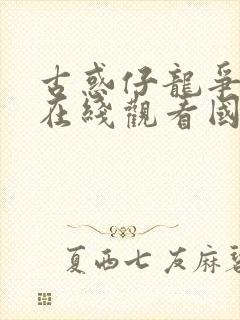 古惑仔龍爭
在綫觀看國
夏西七 友麻碧